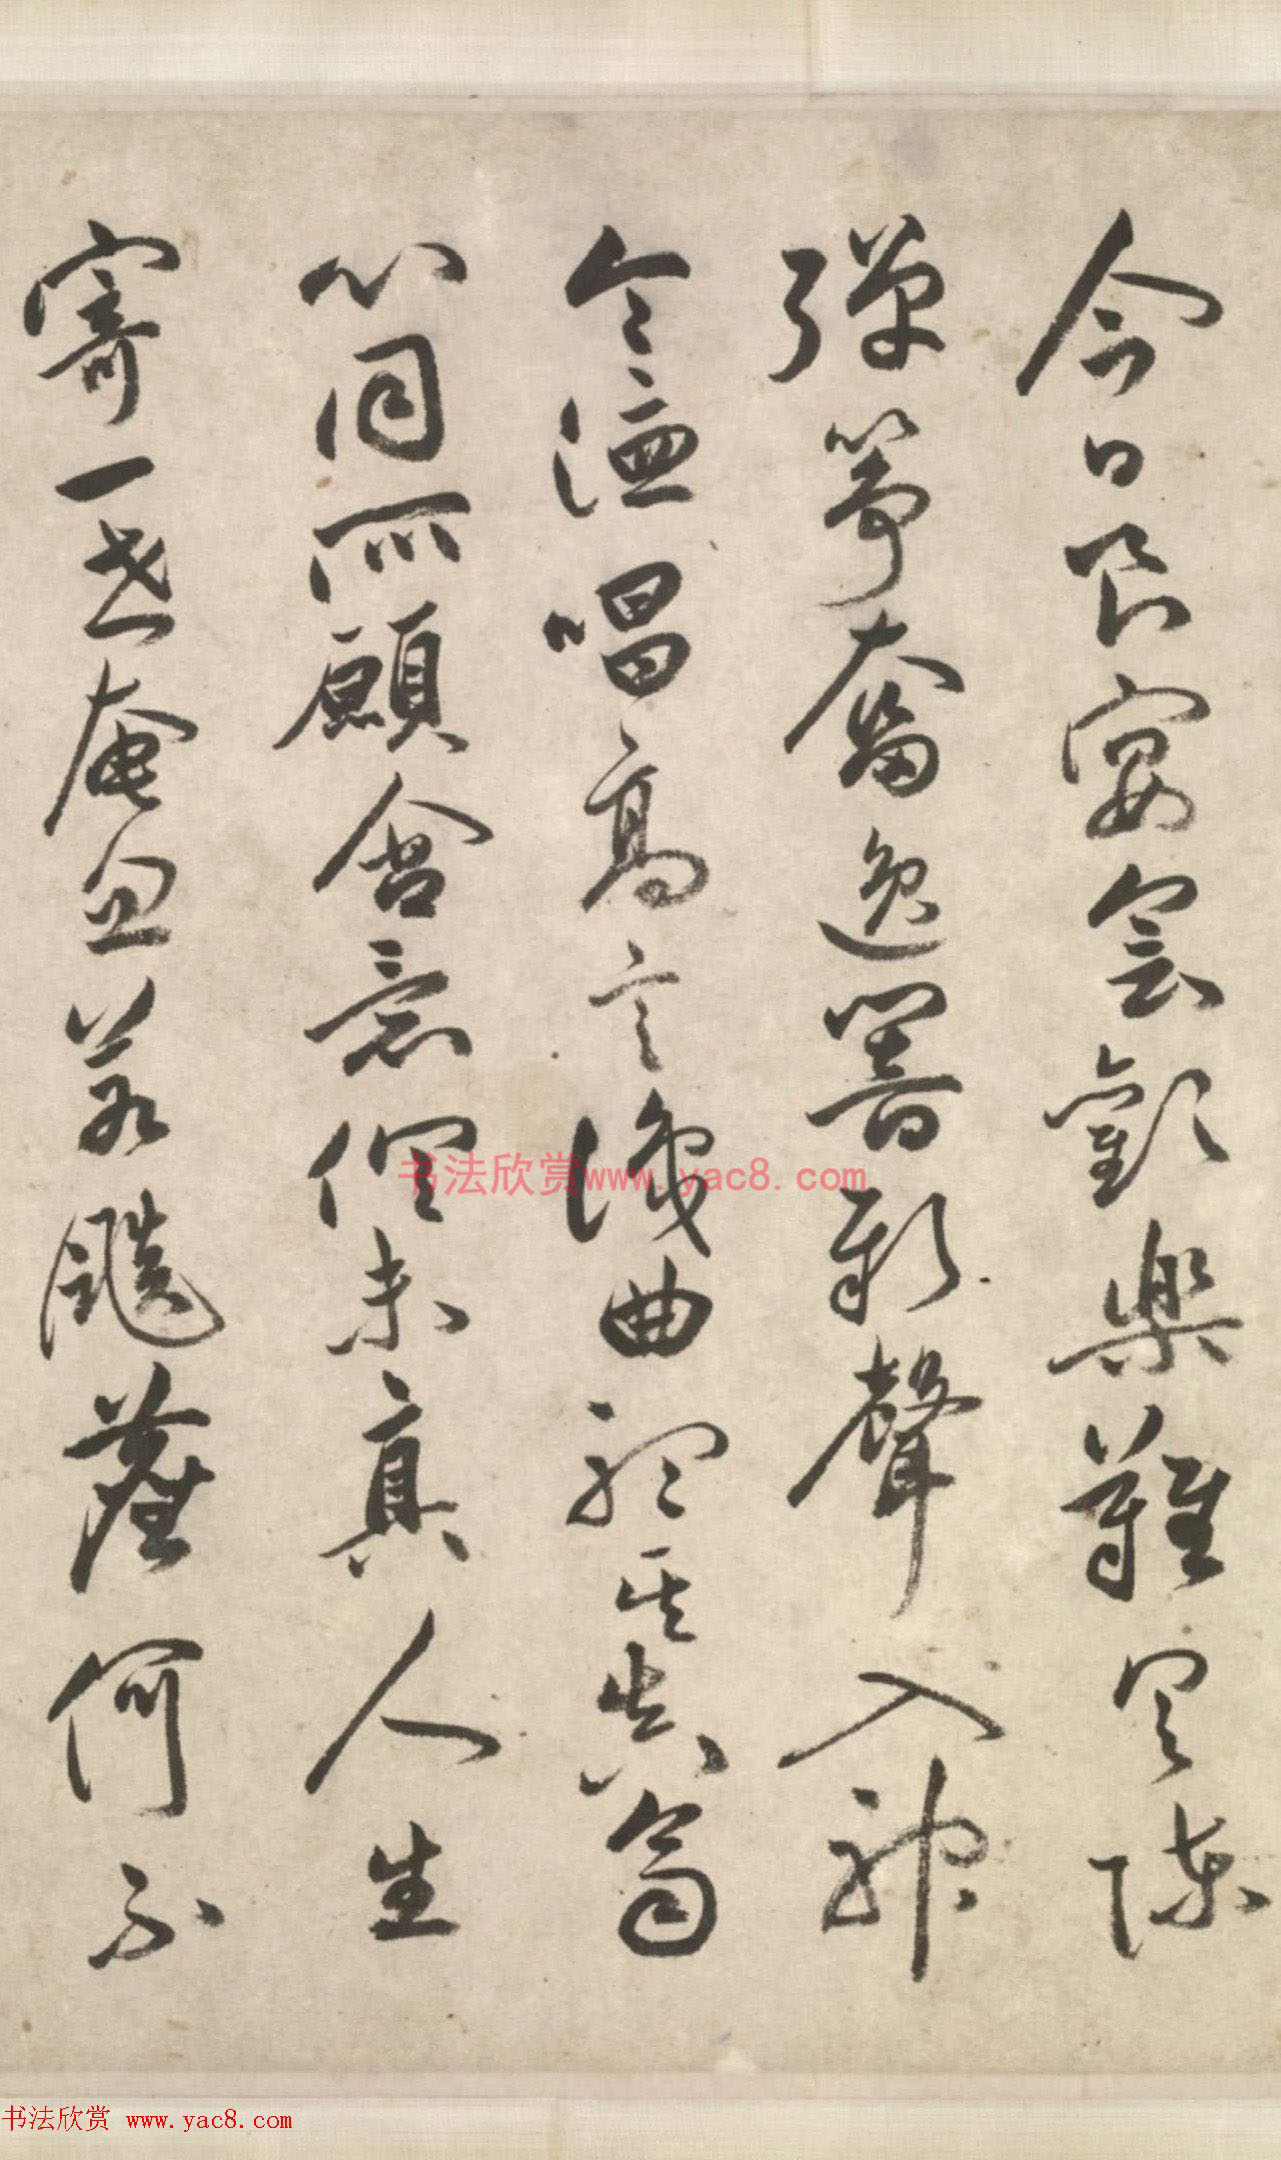 今日良宴會歡樂難具陳
彈箏奮逸響新聲入神
令德唱高言識曲聽其真齊
心同所願含意俱未真人生
寄一世奄忽若飆塵何不
书法欣赏www.yac8.com
书法欣赏 www.yac8.com